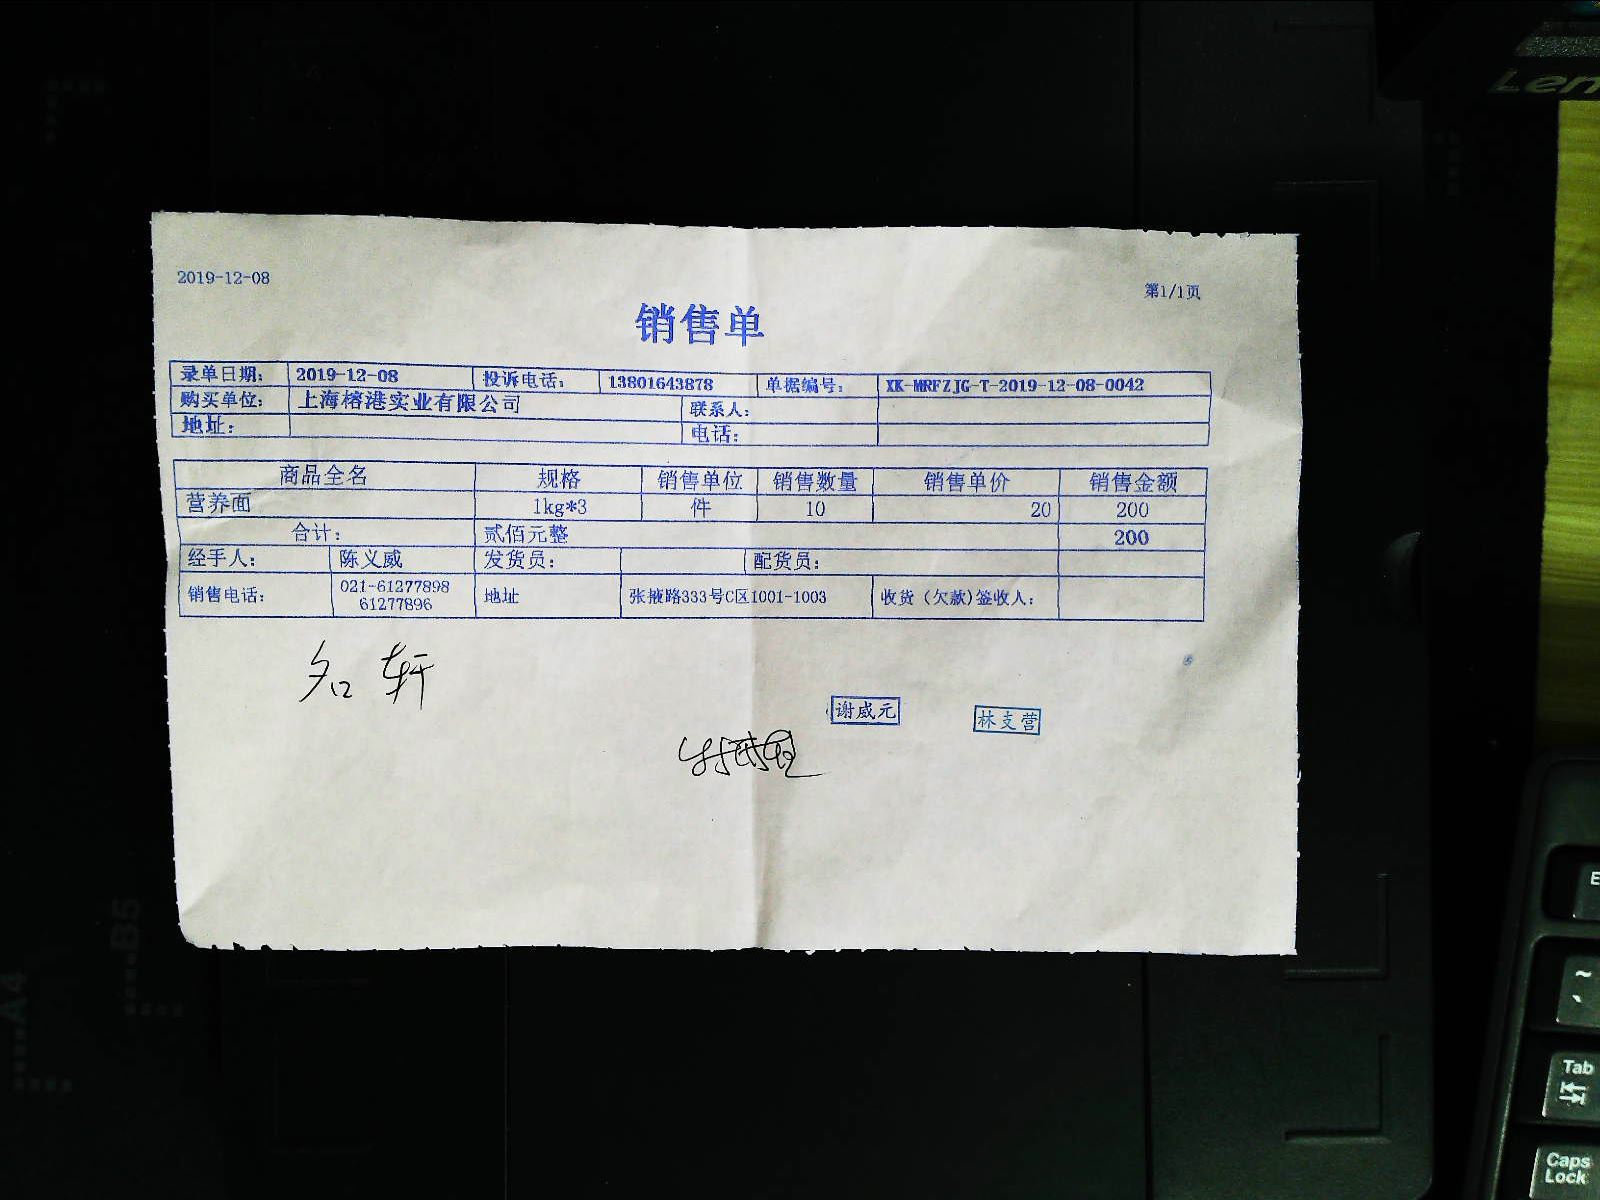 2019-12-08
第1/1页
销售单
录单日期: 2019-12-08 投诉电话: 13801643878 单据编号: XK-MRFZJG-T-2019-12-08-0042
购买单位: 上海榕港实业有限公司 联系人:
地址: 电话:
商品全名 规格 销售单位 销售数量 销售单价 销售金额
营养面 1kg*3 件 10 20 200
合计: 贰佰元整 200
经手人: 陈义威 发货员: 配货员:
销售电话: 021-61277898 61277896 地址 张掖路333号C区1001-1003 收货(欠款)签收人:
名轩
谢威元 林支营
Len
B5
A4
E
~
Tab
Caps Lock